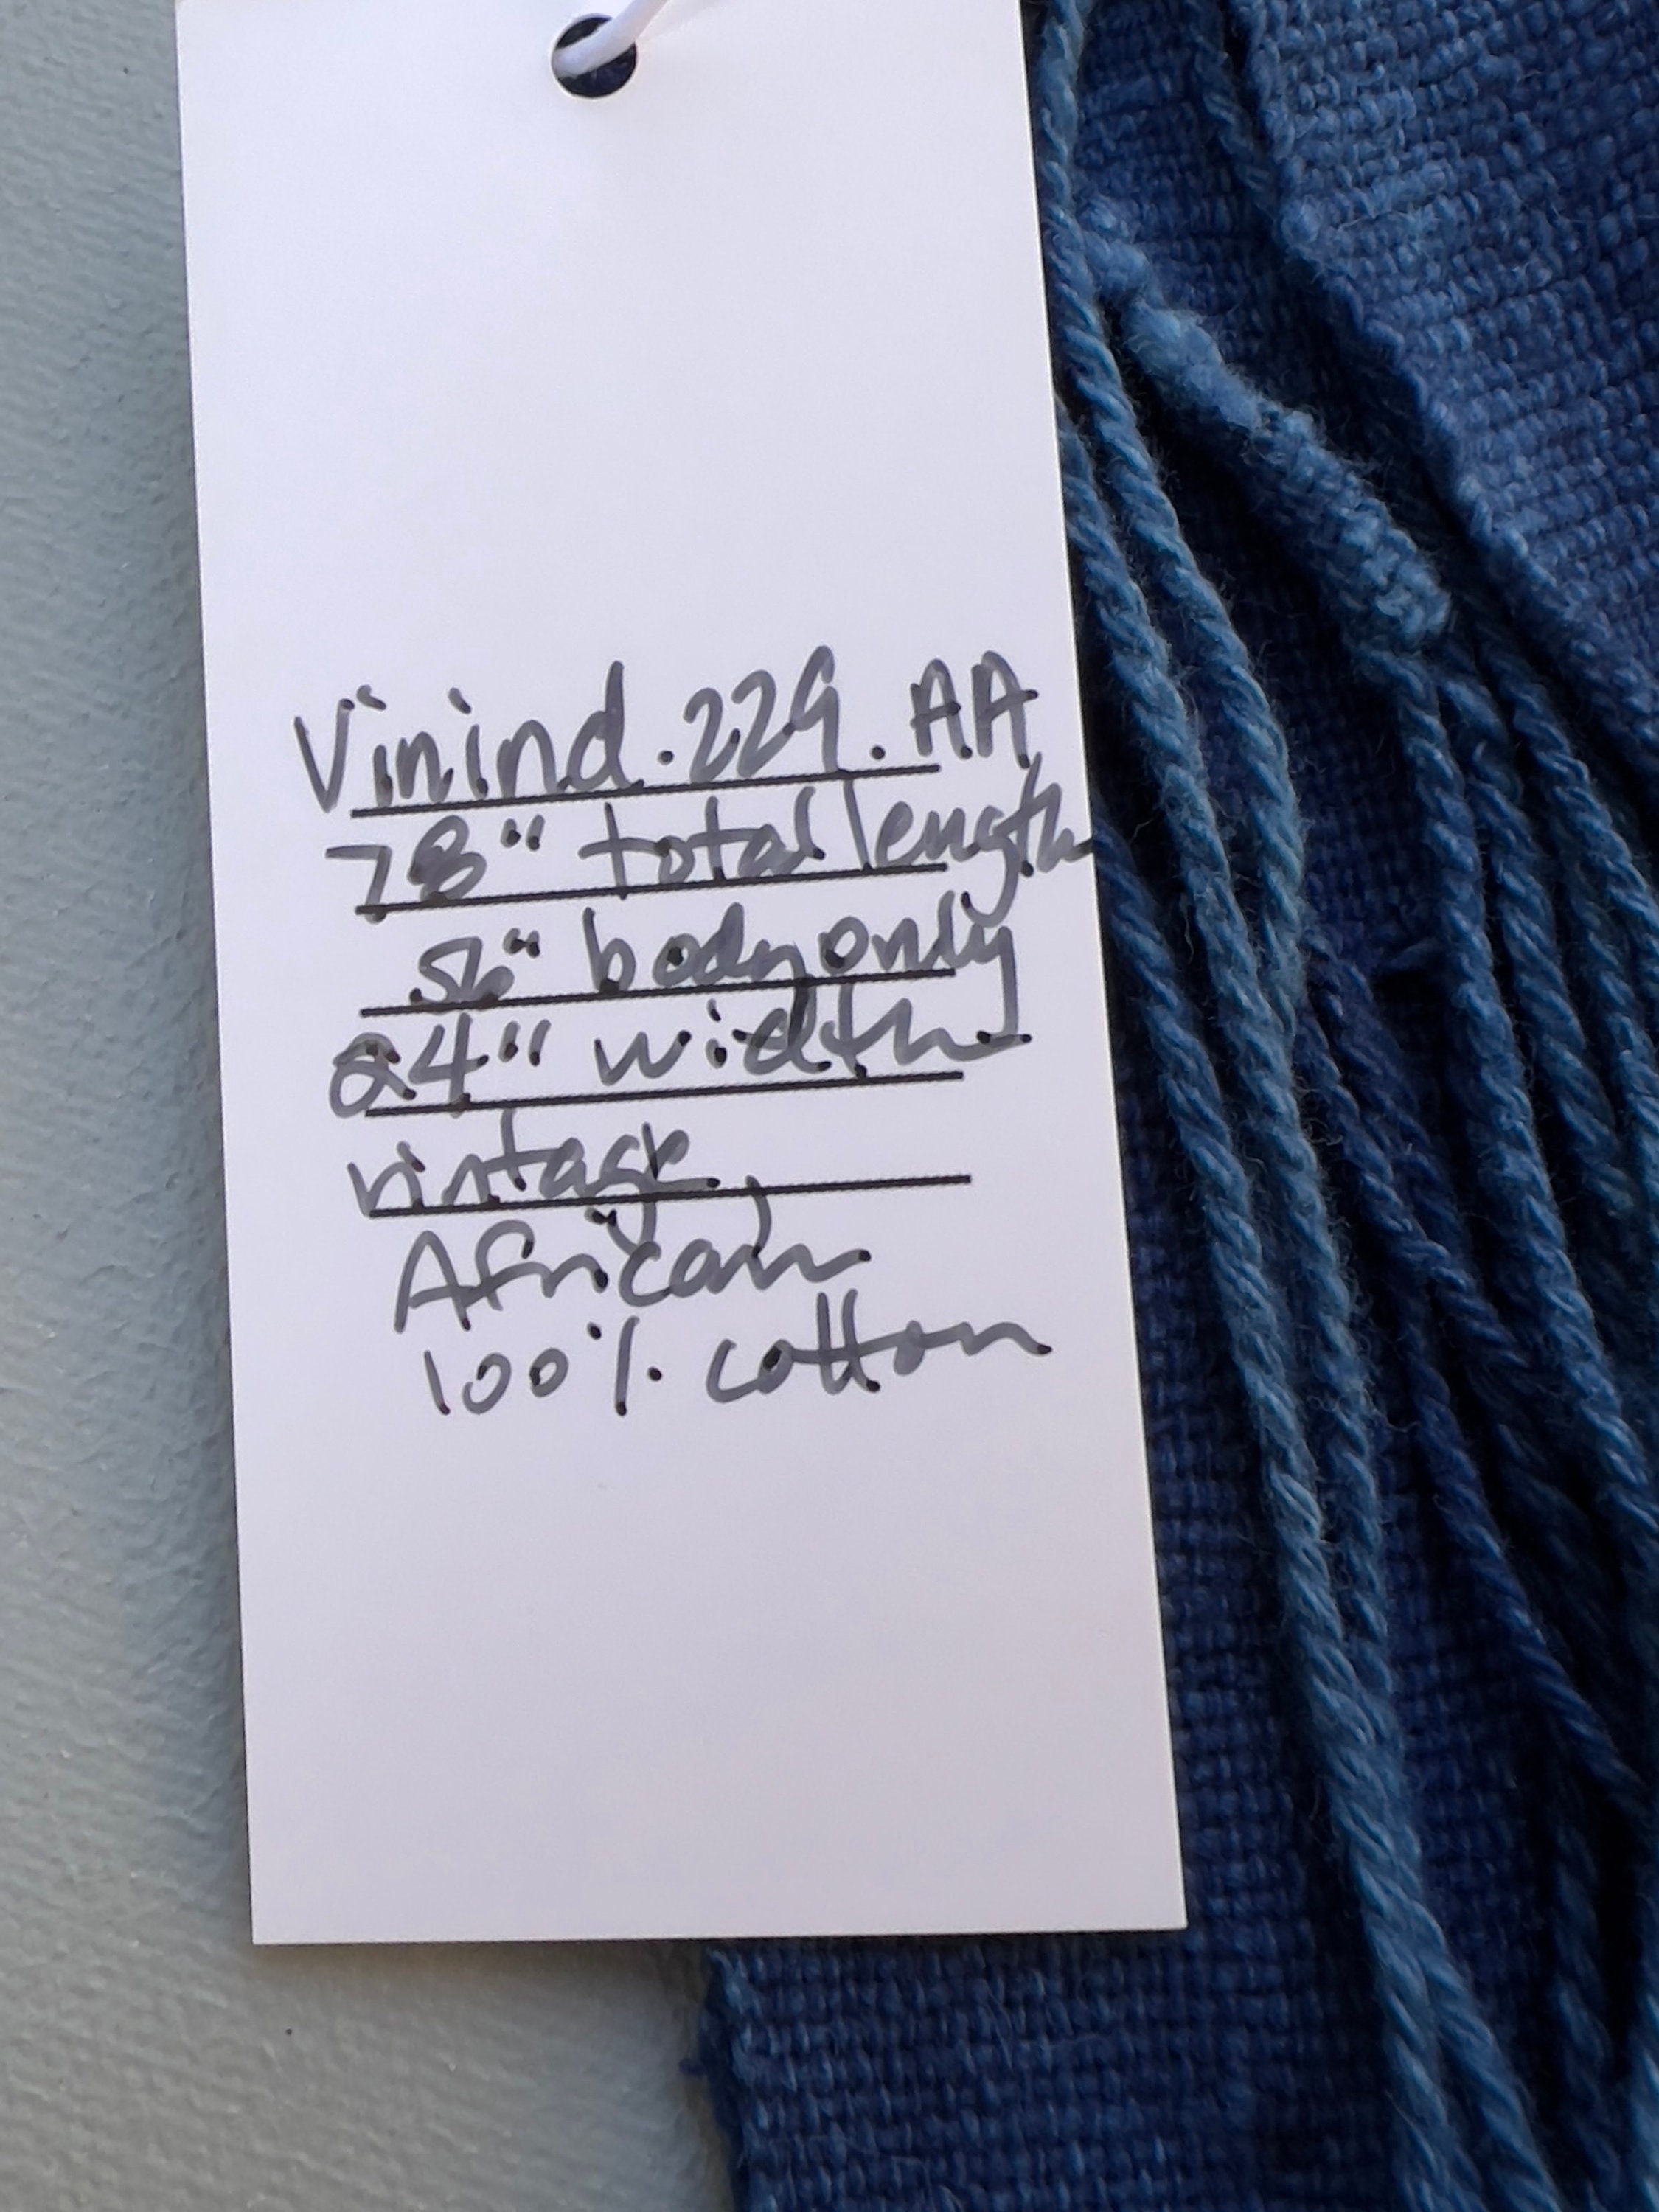 Vinind.229.AA
78" total length
56" body only
24" width
vintage
African
100% cotton